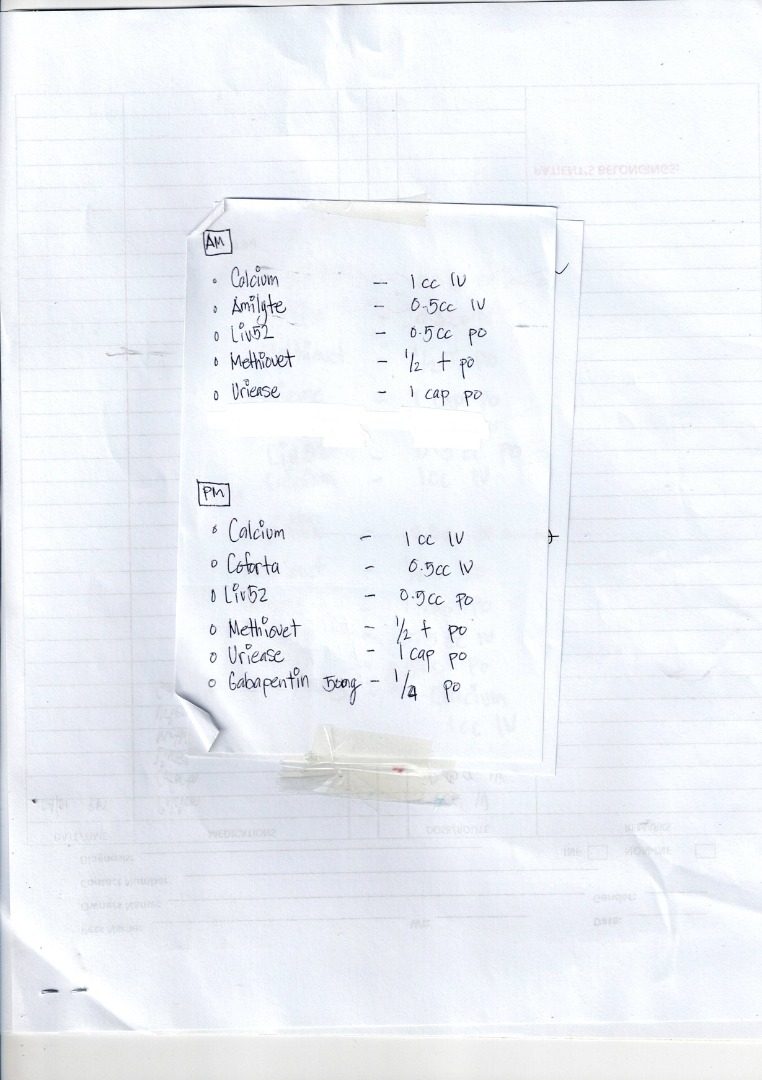 AM
Calcium - 1 cc IV
Amilyte - 0.5cc IV
Liv52 - 0.5cc po
Methiovet - 1/2 t po
Uriease - 1 cap po
PM
Calcium - 1 cc IV
Coforta - 0.5cc IV
Liv52 - 0.5cc po
Methiovet - 1/2 t po
Uriease - 1 cap po
Gabapentin - 1/4 po